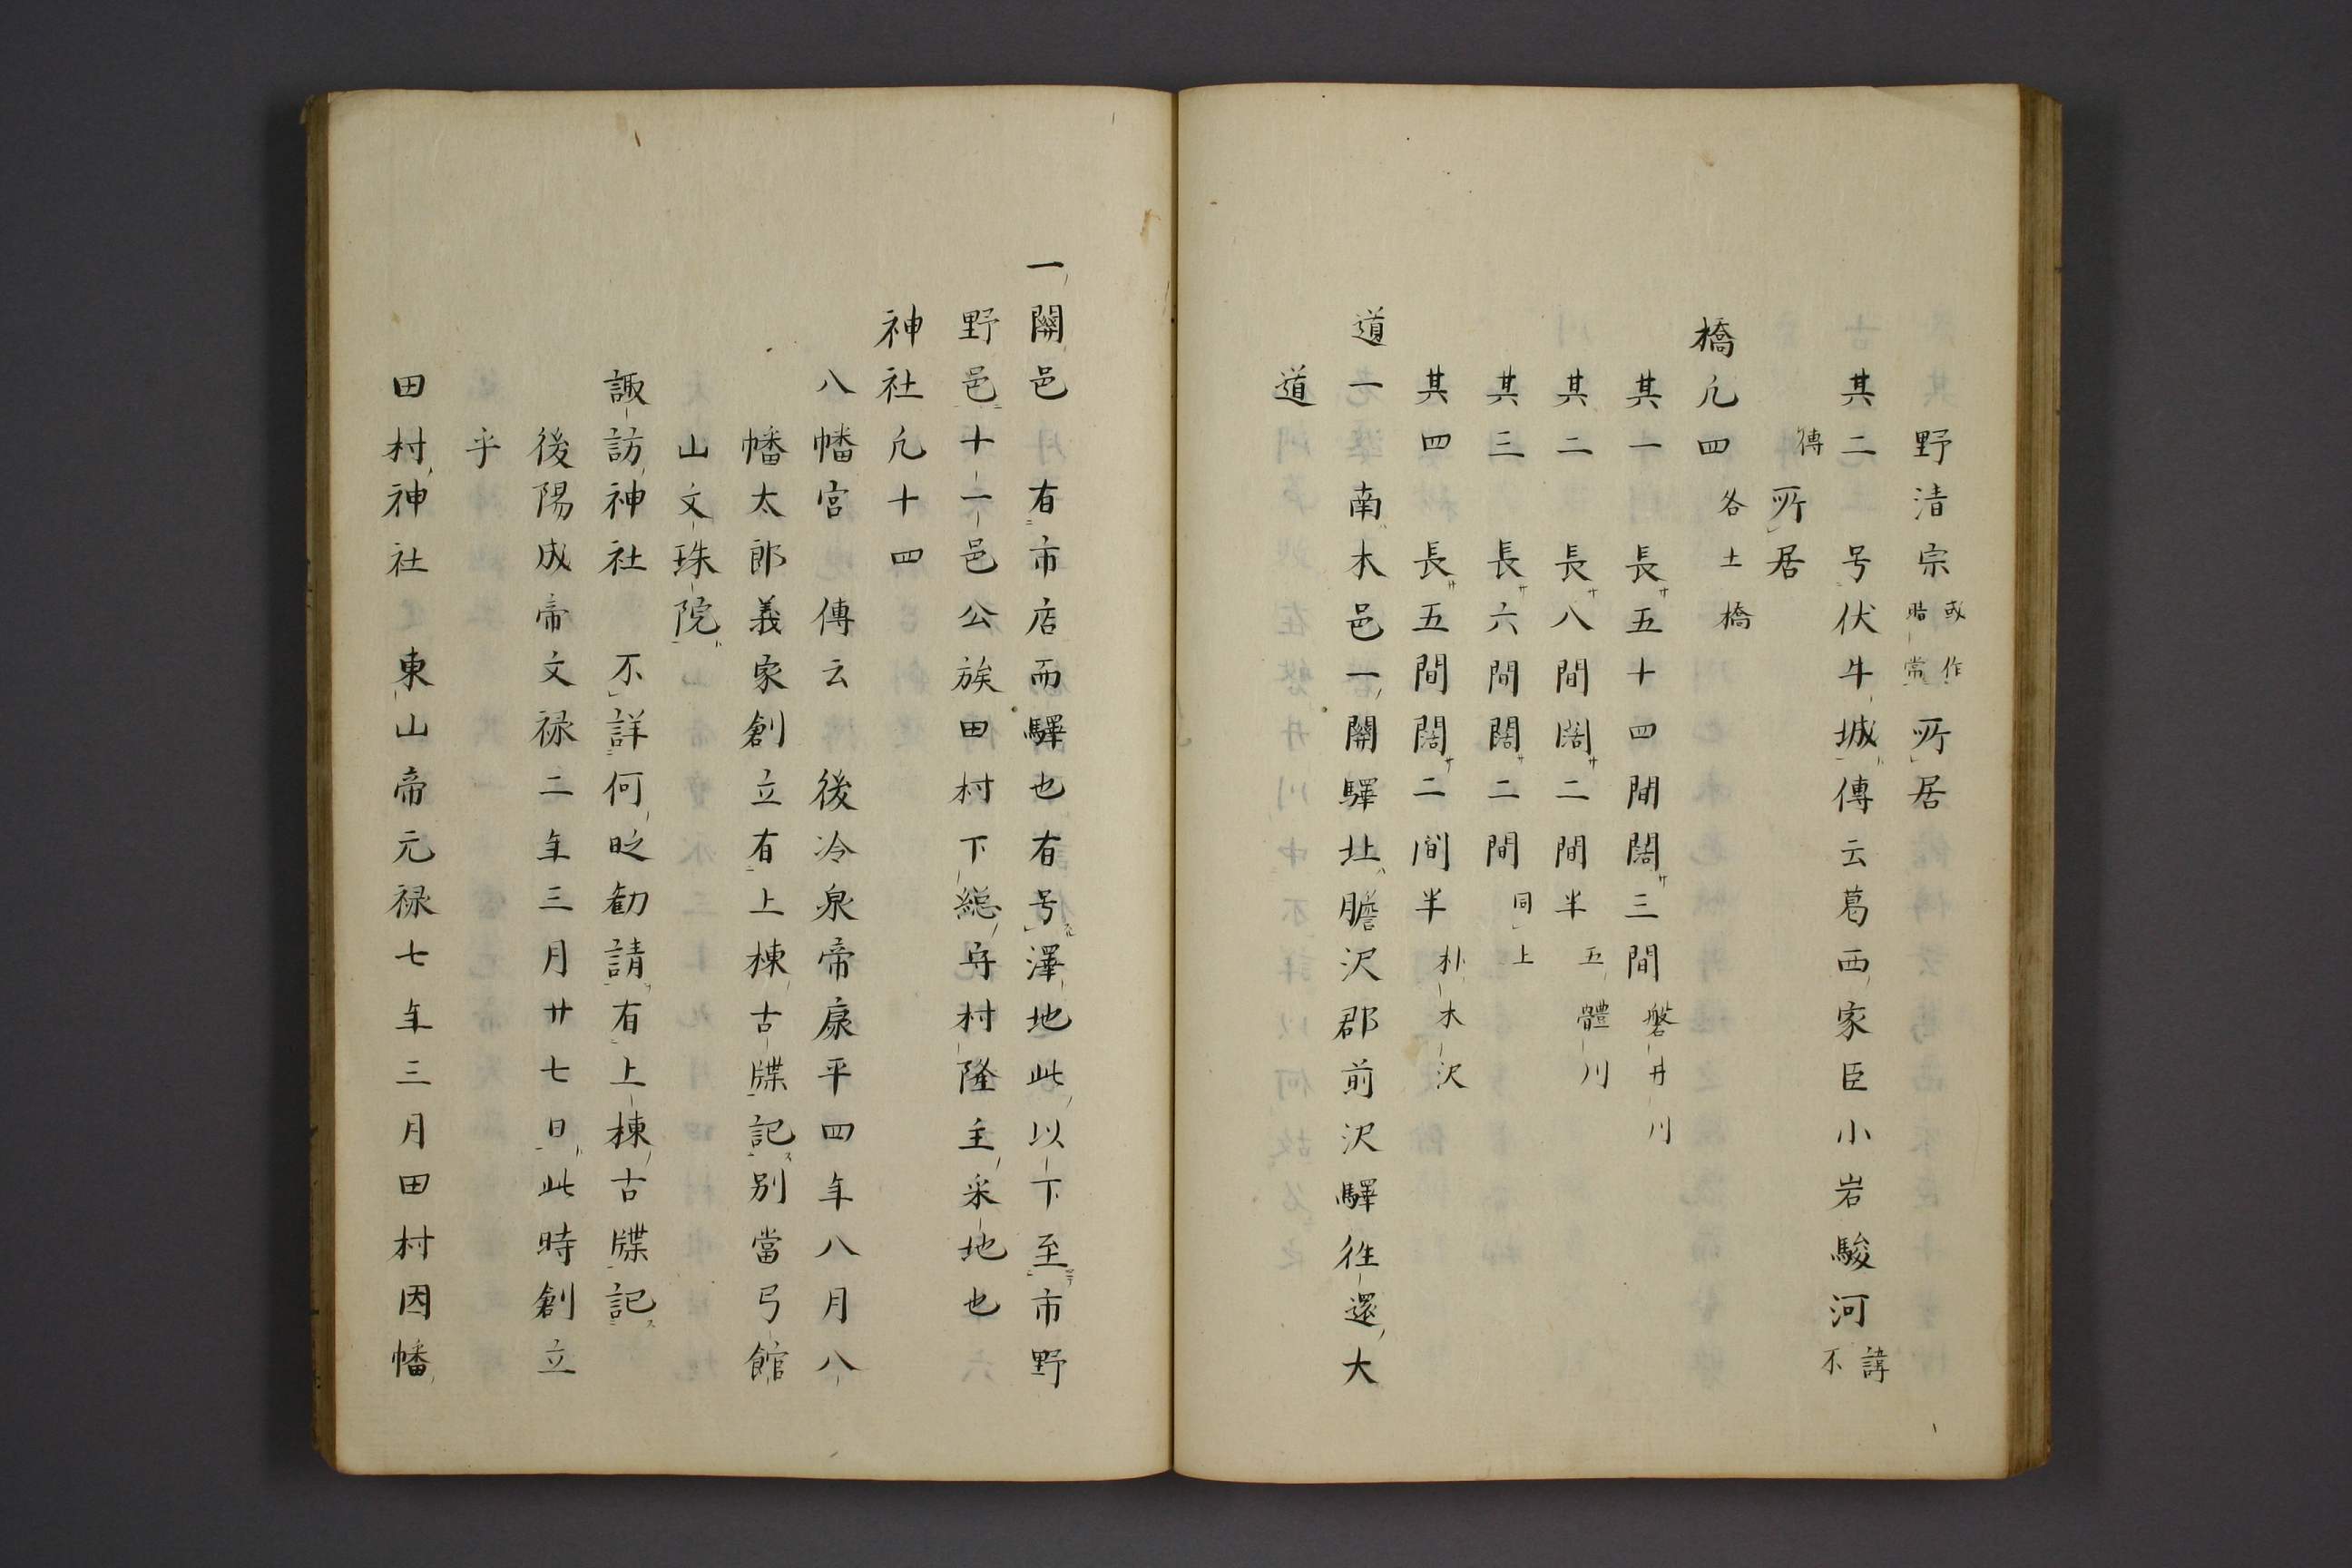 野清宗或作時常所居
其二号伏牛城傳云葛西家臣小岩駿河諱不
傳所居
橋凢四各土橋
其一 長サ五十四間闊サ三間磐井川
其二 長サ八間闊サ二間半五體川
其三 長サ六間闊サ二間同上
其四 長サ五間闊サ二间半朴木沢
道一南ハ木邑一關驛北ハ膽沢郡前沢驛徃還大
道
一關邑有市店而驛也有号澤地此以下至市野
野邑十一邑公族田村下総守村隆主采地也
神社凢十四
八幡宮 傳云 後冷泉帝康平四年八月八
幡太郎義家創立有上棟古牒記別當弓館
山文珠院
諏訪神社 不詳何時勧請有上棟古牒記
後陽成帝文禄二年三月廿七日此時創立
乎
田村神社 東山帝元禄七年三月田村因幡